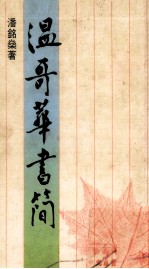 潘銘燊著
溫哥華書簡